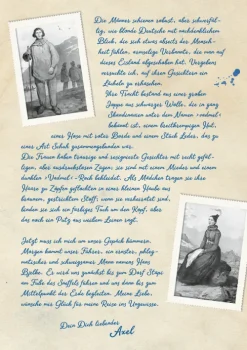 Die Männer schienen robust, aber schwerfäl-
lig, wie blonde Deutsche mit melancholischem
Blick, die sich etwas abseits der Mensch-
heit fühlen, armselige Verbannte, die man auf
dieses Eisland abgeschoben hat. Vergebens
versuchte ich, auf ihren Gesichtern ein
Lächeln zu erhaschen.
Ihre Tracht bestand aus einer groben
Joppe aus schwarzer Wolle, die in ganz
Skandinavien unter dem Namen »vadmel«
bekannt ist, einem breitkrempigen Hut,
einer Hose mit roter Borte und einem Stück Leder, das zu
einer Art Schuh zusammengebunden war.
Die Frauen haben traurige und resignierte Gesichter mit recht gefäl-
ligen, aber ausdruckslosen Zügen; sie sind mit einem Mieder und einem
dunklen »Vadmel«-Rock bekleidet. Als Mädchen tragen sie ihre
Haare zu Zöpfen geflochten in einer kleinen Haube aus
braunem, gestricktem Stoff; wenn sie verheiratet sind,
binden sie sich ein farbiges Tuch um den Kopf, über
das noch ein Putz aus weißem Leinen ragt.
Jetzt muss ich mich um unser Gepäck kümmern.
Morgen kommt unser Führer, ein ernster, phleg-
matischer und schweigsamer Mann namens Hans
Bjelke. Er wird uns zunächst bis zum Dorf Stapi
am Fuße des Snäffels führen und uns dann bis zum
Mittelpunkt der Erde begleiten. Meine Liebe,
wünsche mir Glück für meine Reise ins Ungewisse.
Dein Dich liebender
Axel